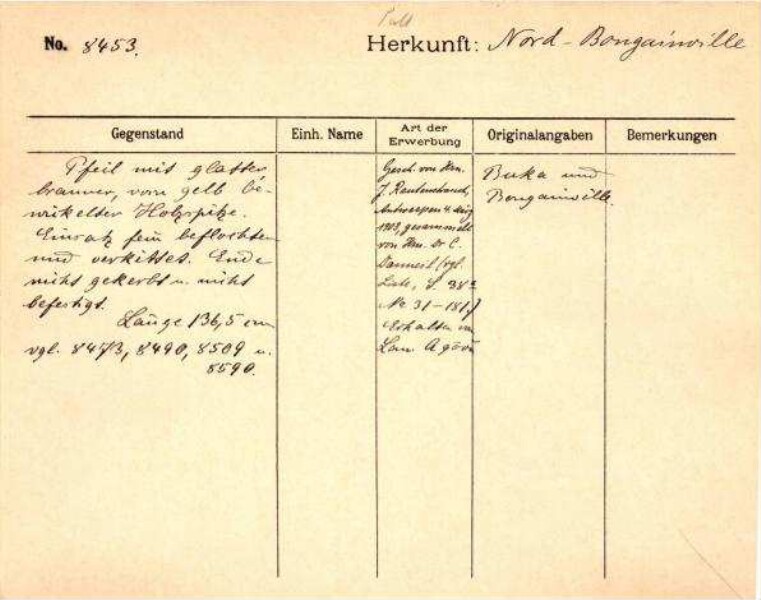 No. 8453.
Herkunft: Nord-Bougainville
Gegenstand
Einh. Name
Art der Erwerbung
Originalangaben
Bemerkungen
Pfeil mit glatter,
brauner, vorn gelb be-
wickelter Holzspitze.
Einsatz fein beflochten
und verkittet. Ende
nicht gekerbt u. nicht
befestigt.
Länge 136,5 cm
vgl. 8473, 8490, 8509 u.
8590.
Gesch. von Hrn.
J. Rautenstrauch,
Antwerpen 4. März
1903, gesammelt
von Hrn. Dr C.
Danneil (vgl.
Liste, S. 38
No 31-181)
Erhalten von
Buka und
Bougainville.